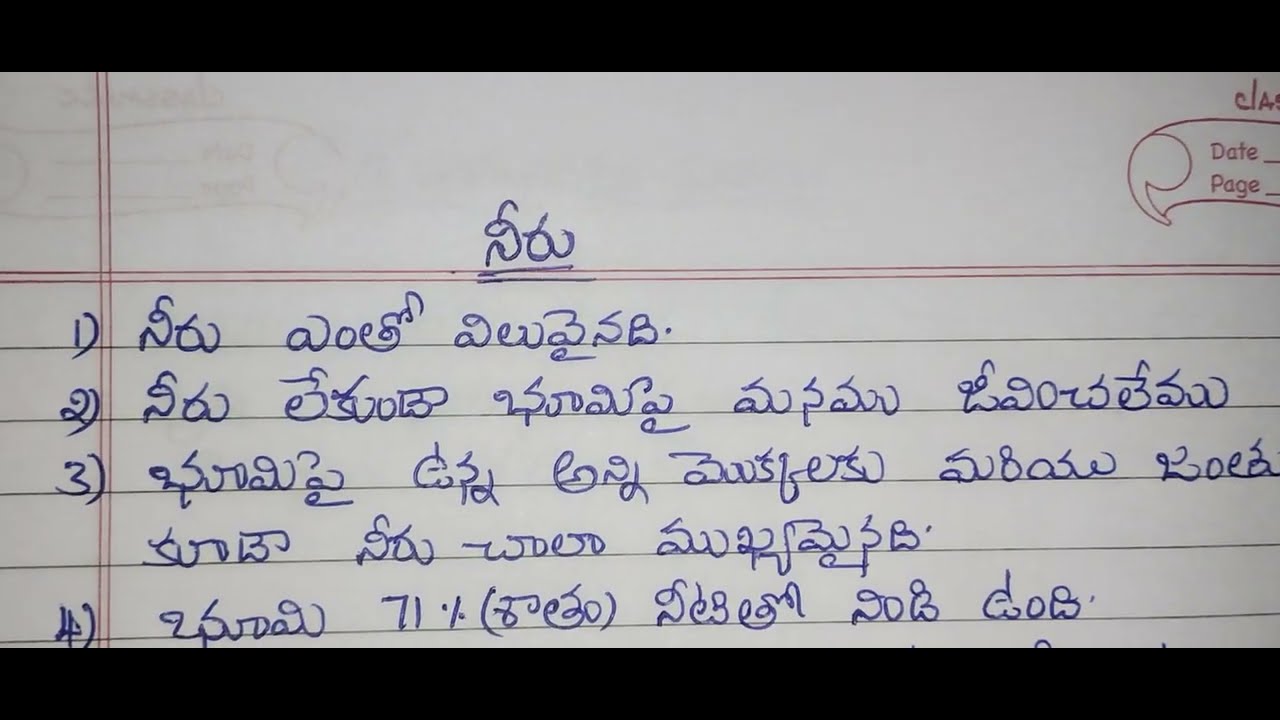 clAS
Date
Page
నీరు
1) నీరు ఎంతో విలువైనది.
2) నీరు లేకుండా భూమిపై మనము జీవించలేము
3) భూమిపై ఉన్న అన్ని మొక్కలకు మరియు జంతు
కూడా నీరు చాలా ముఖ్యమైనది.
4) భూమి 71% (శాతం) నీటితో నిండి ఉంది.